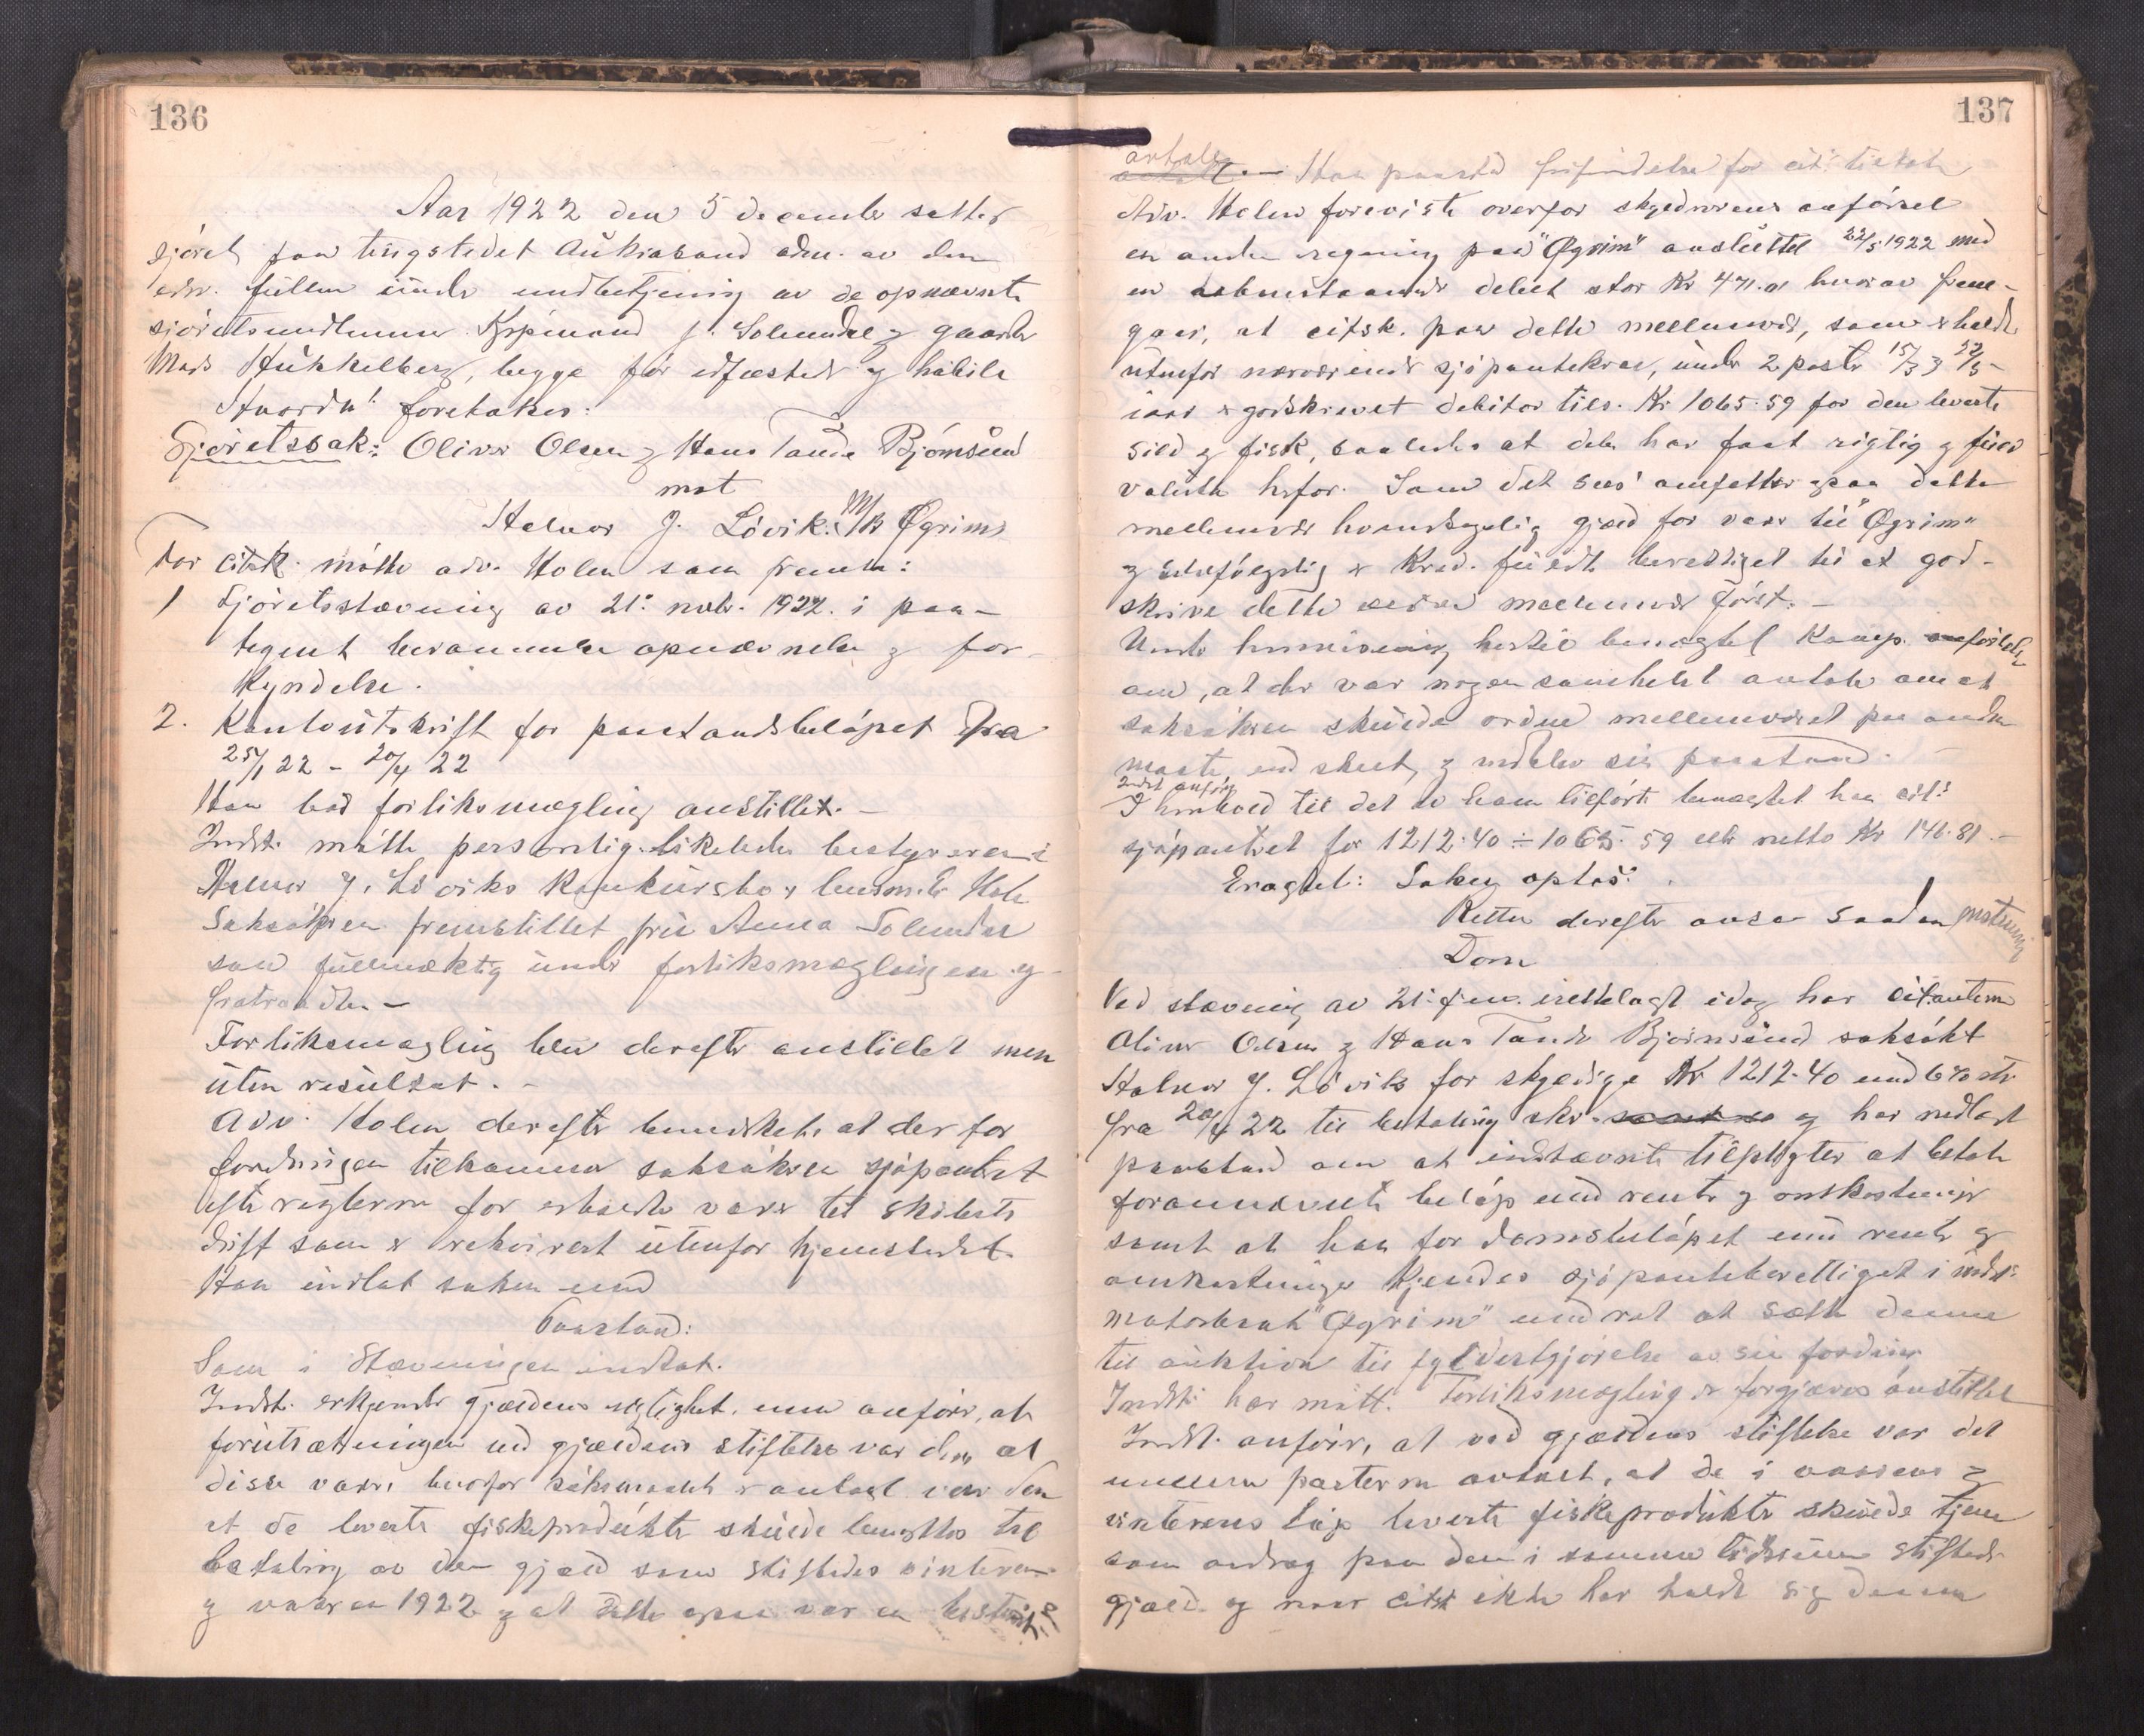 136
Aar 1922 den 5 december sattes
sjöret paa tingstedet Aukrasand adm. av den
edsv. fuldm under medbetjening av de opnævnte
sjöretsmedlemmer Kjøpmand J. Solemdal og gaardbr
Mads Hukkelberg, begge før edfæstede og habile
Hvorda! foretokes:
Sjöretssak: Oliver Olsen og Hans Tande Bjørnsund
mot
Halvor J. Lövik: M/K Øgrim
For citsk. møtte adv. Holen som fremla:
1 Sjöretsstævning av 21. novbr. 1922. i paa-
tegnet berammelse opnævnelse og for-
kyndelse.
2. Kontoutskrift for paastandsbeløpet fra
25/1 22 - 20/4 22
Han bad forliksmægling anstillet. -
Indst. møtte personlig. likeledes bestyreren i
Halvor J. Löviks konkursbo, lensm.
Saksøkeren fremstillet frk Anna Solemdal
som fuldmæktig under forliksmæglingen og
fratraadte. -
Forliksmægling blev derefter anstillet men
uten resultat. -
Adv. Holen derefter bemerket at der for
fordringen tilkommer saksøkeren sjøpanteret
efter reglerne for erholdte varer til skibets
drift som er rekvirert utenfor hjemstedet.
Han indlot saken med
Paastand:
Som i Stævningen indtat.
Indst. erkjender gjældens rigtighet, men anfører, at
forutsætningen ved gjældens stiftelse var den, at
disse varer, hvorfor søksmaalet er anlagt var den
at de leverte fiskeprodukter skulde benyttes til
betaling av den gjæld som stiftedes vinteren
og vaaren 1922 og at dette ogsaa var en bestemt
137
avtale
Han paastod frifindelse for cit. tiltale
Adv. Holen foreviste overfor skyldnerens anførsel
en anden regning paa "Øgrim" avsluttet 22/5 1922 med
en debet stor Kr 471.01 hvorav frem-
gaar, at citsk. paa dette mellemvær, som er holdt
utenfor nærværende sjøpantekrav, under 2 poster 15/3 og 22/5
iaar er godskrevet debitor tils. Kr 1065.59 for den leverte
sild og fisk, saaledes at den har faat rigtig og fuld
valuta herfor. Som det sees omfatter ogsaa dette
mellemvær hovedsagelig gjæld for varer til "Øgrim"
og selvfølgelig er Kred. fuldt berettiget til at god-
skrive dette mellemvær først. -
Under henvisning hertil benegtet Komp.
om, at der var nogen somhelst avtale om at
saksøkeren skulde ordne mellemværet paa anden
maate end skeet, og nedla sin paastand. -
Indst anfør
I henhold til det av ham tilførte benegtet han cit.
sjøpanteret for 1212.40 ÷ 1065.59 eller netto Kr 146.81. -
Eragtet: Saken optas.
Retten derefter avsa saadan enstemmig
Dom
Ved stævning av 21. f.m. irettelagt idag har citanterne
Oliver Olsen og Hans Tande Bjørnsund saksøkt
Halvor J. Lövik for skyldige Kr 1212.40 med 6% rente
fra 20/4 22 til betaling sker og har nedlagt
paastand om at indstævnte tilpligtes at betale
forannævnte beløp med renter og omkostninger
samt at han for domsbeløpet med renter og
omkostninger kjendes sjøpanteberettiget i indst.
motorbaat "Øgrim" med ret at sætte denne
til auktion til fyldestgjørelse av sin fordring
Indst. har møtt. Forliksmægling er forgjæves anstillet
Indst. anfører, at ved gjældens stiftelse var det
mellem parterne avtalt, at de i vaarens og
vinterens løp leverte fiskeprodukter skulde tjene
som avdrag paa den i samme tidsrum stiftede
gjæld og naar citsk ikke har holdt sig denne